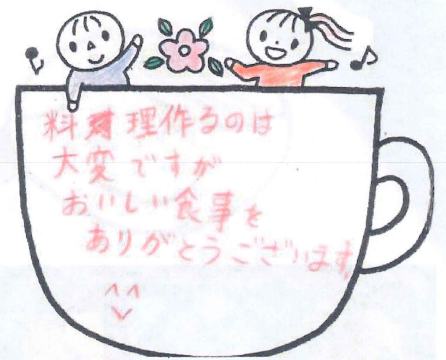 料理作るのは
大変ですが
おいしい食事を
ありがとうございます。